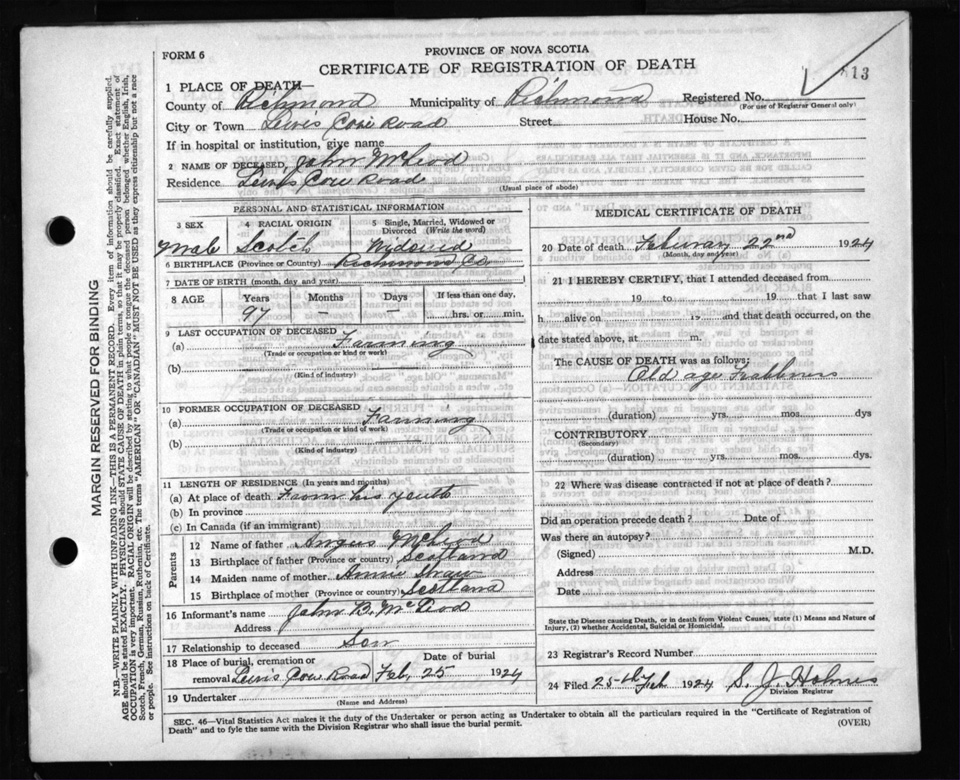 FORM 6
PROVINCE OF NOVA SCOTIA
CERTIFICATE OF REGISTRATION OF DEATH
13
1 PLACE OF DEATH—
County of Richmond Municipality of Richmond Registered No.
(For use of Registrar General only)
City or Town Lewis Cove Road Street House No.
If in hospital or institution, give name
2 NAME OF DECEASED, John McLeod
Residence Lewis Cove Road
(Usual place of abode)
PERSONAL AND STATISTICAL INFORMATION
3 SEX 4 RACIAL ORIGIN 5 Single, Married, Widowed or Divorced (Write the word)
Male Scotch Widowed
6 BIRTHPLACE (Province or Country) Richmond Co,
7 DATE OF BIRTH (month, day and year)
8 AGE Years Months Days If less than one day,
97 — — hrs. or min.
9 LAST OCCUPATION OF DECEASED
(a) Farming
(Trade or occupation or kind or work)
(b)
(Kind of industry)
10 FORMER OCCUPATION OF DECEASED
(a) Farming
(Trade or occupation or kind of work)
(b)
(Kind of industry)
11 LENGTH OF RESIDENCE (In years and months)
(a) At place of death From his youth
(b) In province
(c) In Canada (if an immigrant)
Parents
12 Name of father Angus McLeod
13 Birthplace of father (Province or country) Scotland
14 Maiden name of mother Annie Shaw
15 Birthplace of mother (Province or country) Scotland
16 Informant's name John B. McLeod
Address
17 Relationship to deceased Son
18 Place of burial, cremation or Date of burial
removal Lewis Cove Road Feb, 25 1924
19 Undertaker
(Name and Address)
MEDICAL CERTIFICATE OF DEATH
20 Date of death February 22nd 1924
(Month, day and year)
21 I HEREBY CERTIFY, that I attended deceased from
19 to 19 that I last saw
h alive on 19 and that death occurred, on
date stated above, at m.
The CAUSE OF DEATH was as follows:
Old age
(duration) yrs. mos. dys
CONTRIBUTORY
(Secondary)
(duration) yrs. mos. dys.
22 Where was disease contracted if not at place of death?
Did an operation precede death? Date of
Was there an autopsy?
(Signed) M.D.
Address
Date
State the Disease causing Death, or in death from Violent Causes, state (1) Means and Nature of
Injury, (2) whether Accidental, Suicidal or Homicidal.
23 Registrar's Record Number
24 Filed 25th Feb 1924 S. J. Holmes
Division Registrar
SEC. 46—Vital Statistics Act makes it the duty of the Undertaker or person acting as Undertaker to obtain all the particulars required in the "Certificate of Registration of
Death" and to fyle the same with the Division Registrar who shall issue the burial permit.
(OVER)
MARGIN RESERVED FOR BINDING
N.B.—WRITE PLAINLY WITH UNFADING INK—THIS IS A PERMANENT RECORD. Every item of information should be carefully supplied.
AGE should be stated EXACTLY. PHYSICIANS should STATE CAUSE OF DEATH in plain terms, so that it may be properly classified. Exact statement of
OCCUPATION is very important. RACIAL ORIGIN will be described by stating to what people or tongue the deceased person belonged whether English, Irish,
Scotch, French, German, Russian, Ruthenian, etc. The terms "AMERICAN" or "CANADIAN" MUST NOT BE USED as they express citizenship but not a race
or people. See instructions on back of Certificate.